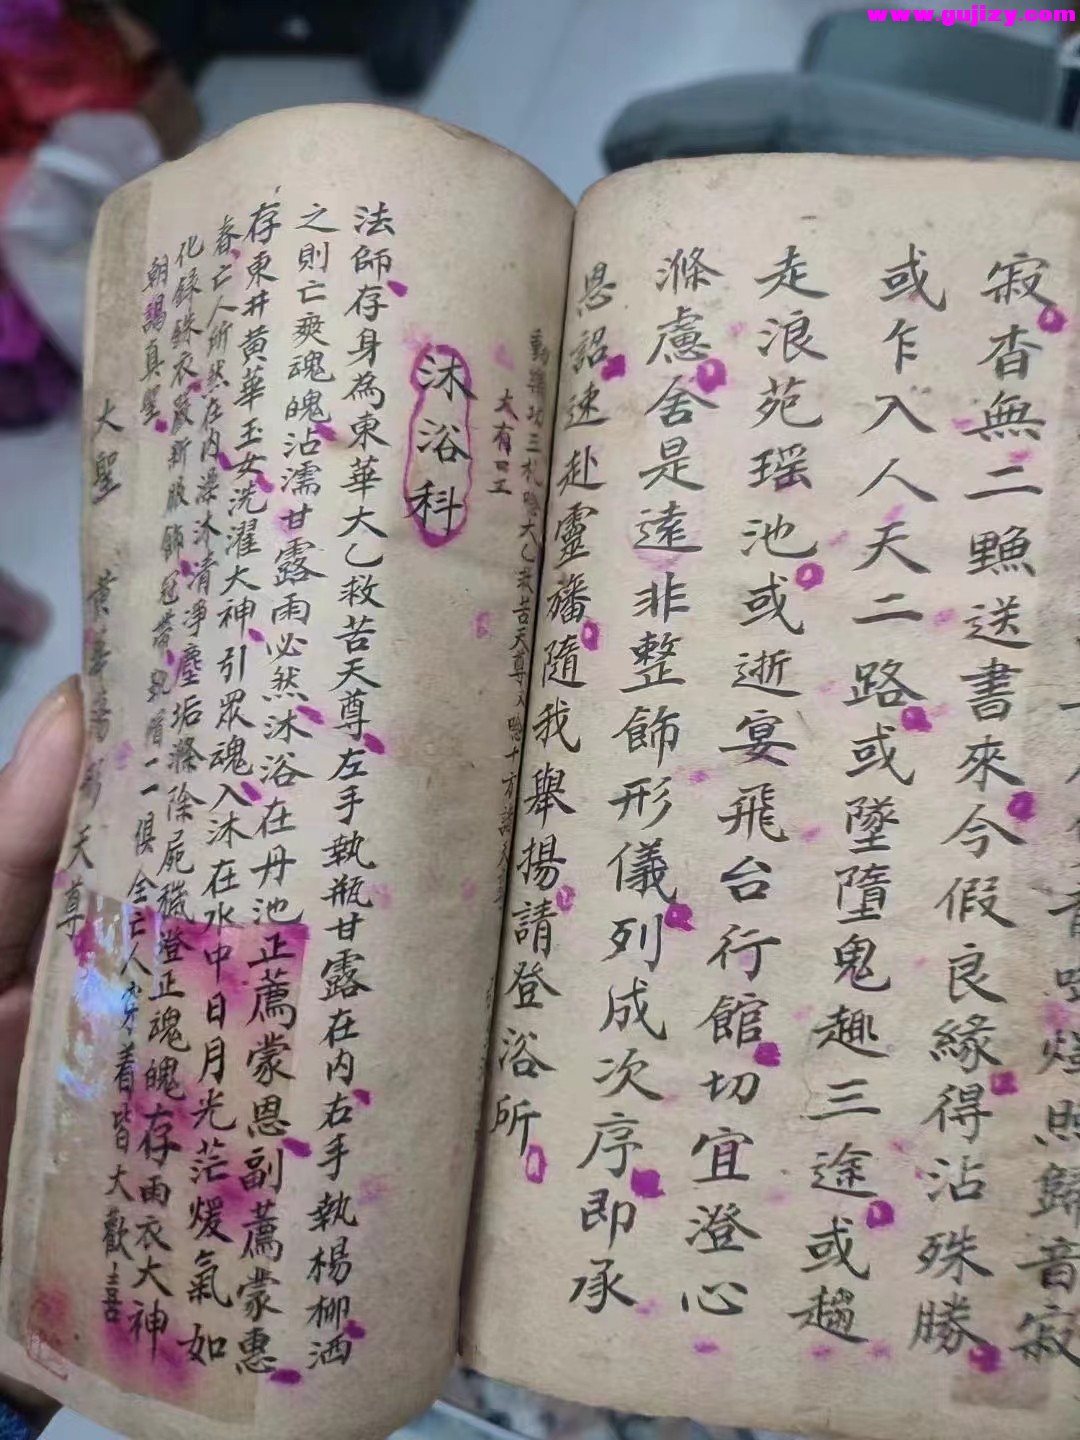 www.gujizy.com
音寂
寂杳無二點送書來今假良緣得沾殊勝
或乍入人天二路或墜墮鬼趣三途或趨
走浪苑瑶池或逝宴飛台行館切宜澄心
滌慮舍是遠非整飾形儀列成次序即承
恩詔速赴靈旛隨我舉揚請登浴所
三札唸大乙救苦天尊又唸十方諸天尊
大有
沐浴科
法師存身為東華大乙救苦天尊左手執瓶甘露在内右手執楊柳洒
之則亡爽魂魄沾濡甘露雨必然沐浴在丹池正薦蒙恩副薦蒙惠
存東井黄華玉女洗濯大神引眾魂入沐在水中日月光茫煖氣如
春亡人所然在内澡沐清净塵垢滌除屍穢登正魂魄存雨衣大神
化録銖衣嚴新服飾冠帶一一俱全亡人穿着皆大歡喜
朝謁真聖
大聖黄華蕩形天尊